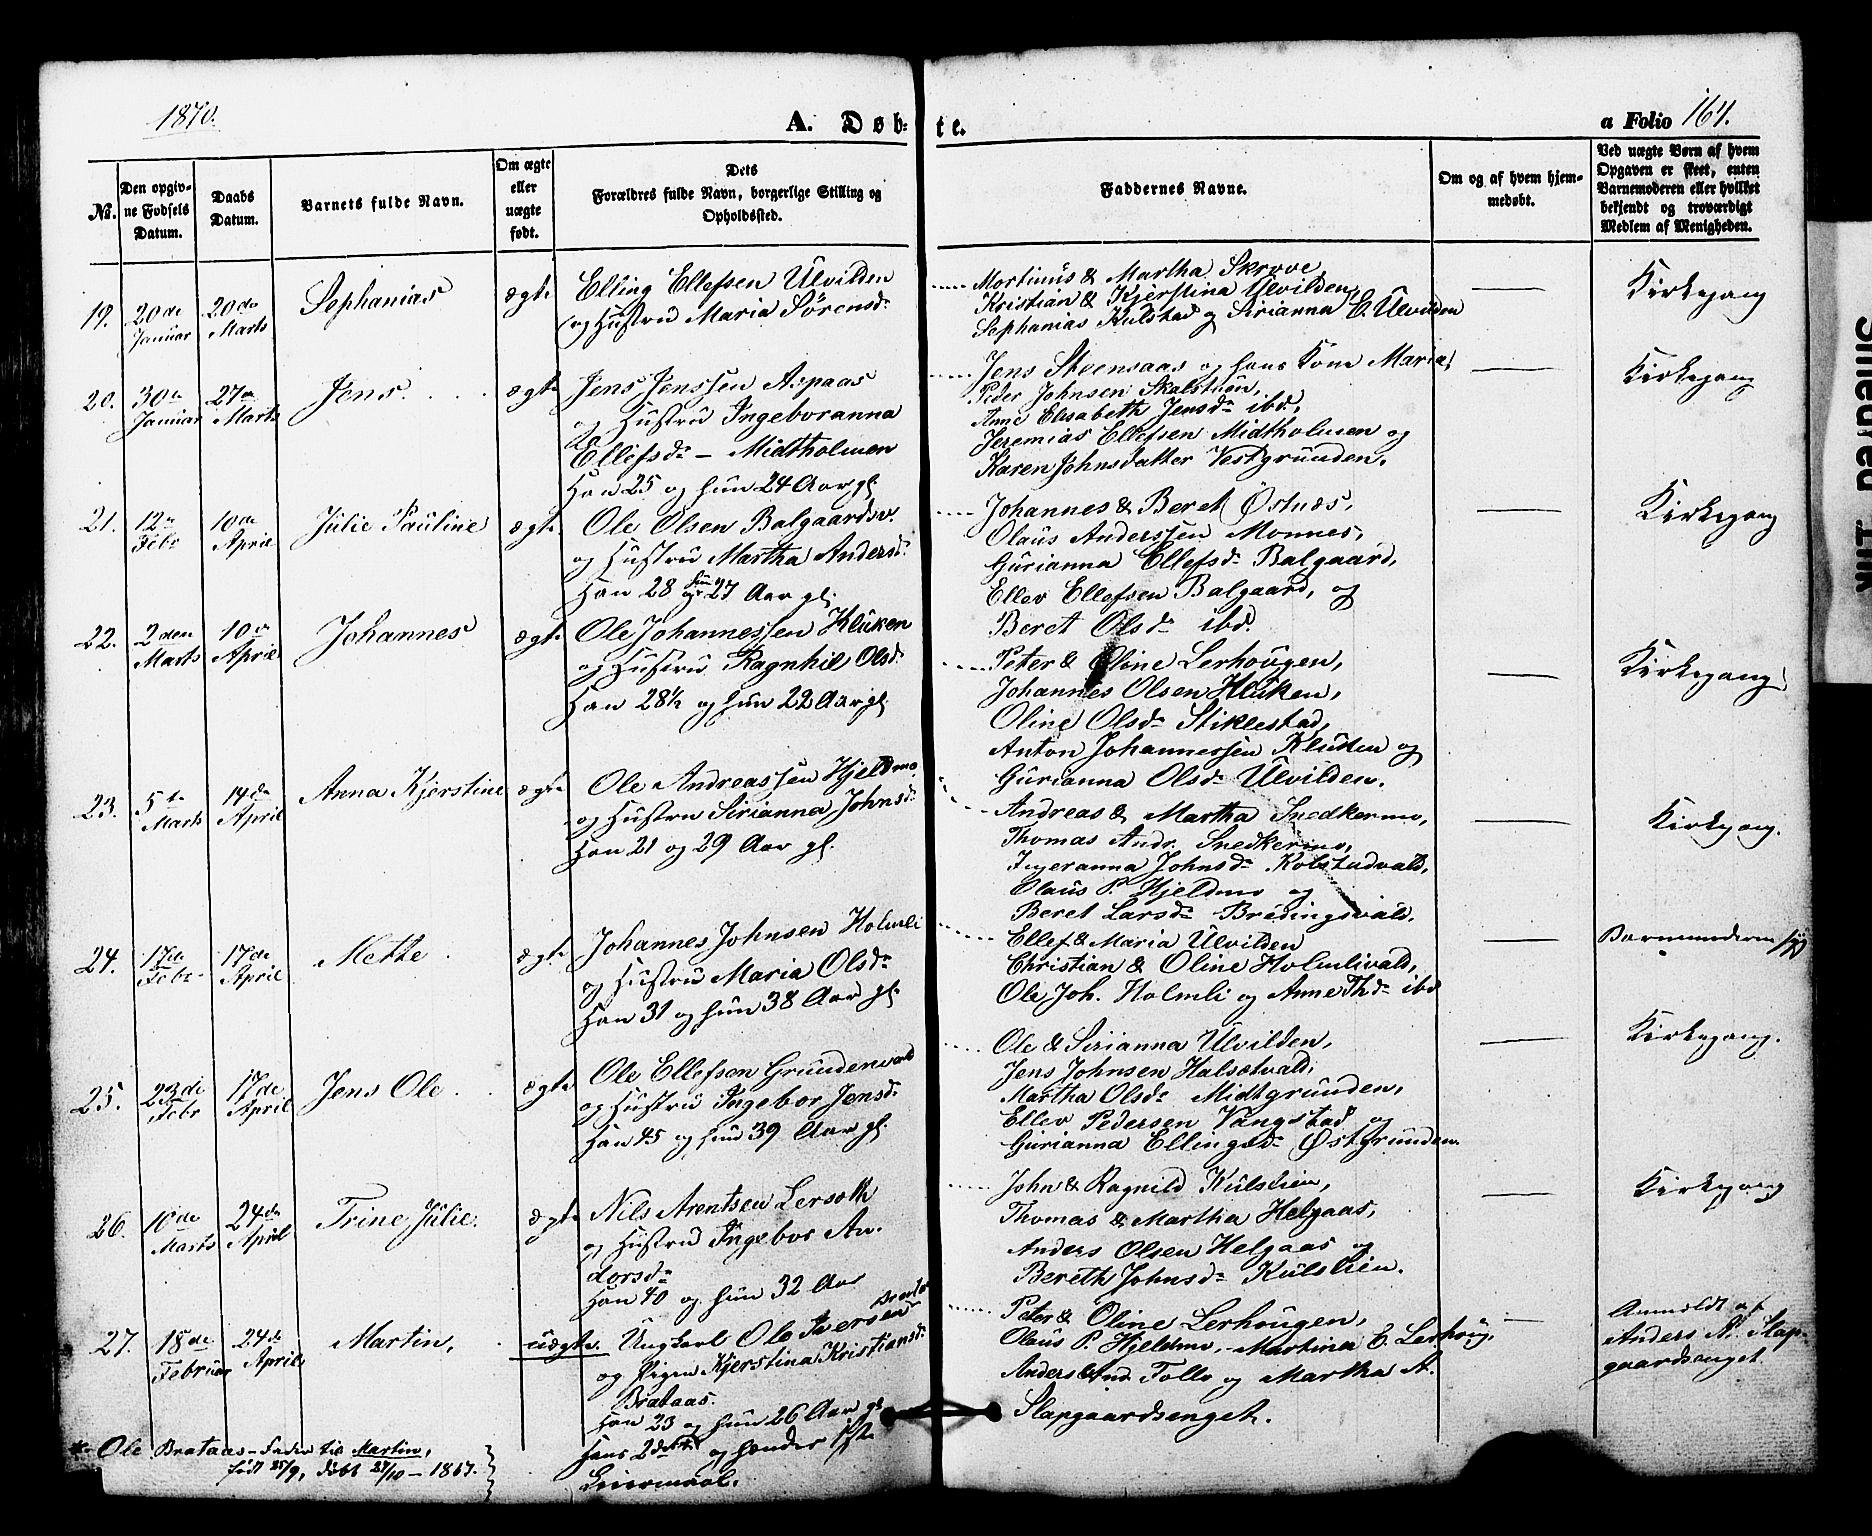 1870.
A. Døb-
te.
a Folio 164.
No.
Den opgiv-
ne Fødsels
Datum.
Daabs
Datum.
Barnets fulde Navn.
Om ægte
eller
uægte
født.
Dets
Forældres fulde Navn, borgerlige Stilling og
Opholdssted.
Faddernes Navne.
Om og af hvem hjem-
medøbt.
Ved uægte Børn af hvem
Opgaven er skeet, enten
Barnemoderen eller hvilket
bekjendt og troværdigt
Medlem af Menigheden.
19.
20de
Januar
20de
Marts
Sephanias
ægte
Elling Ellefsen Ulvilden
og Hustru Maria Sørensd.
Mortinus & Martha Skrove
Kristian & Kjerstina Ulvilden,
Sephanias Kulstad og Sirianna E. Ulvilden
Kirkegang
20.
30te
Januar
27de
Marts
Jens.
ægte
Jens Jenssen Aspaas
og Hustru Ingeboranna
Ellefsdr - Midtholmen
Han 25 og hun 24 Aar gl.
Jens Steensaas og hans Kone Maria,
Peder Johnsen Skalstuen,
Anne Elisabeth Jensdr ibd.,
Jeremias Ellefsen Midtholmen og
Karen Johnsdatter Vestgrunden.
Kirkegang
21.
12te
Febr
10de
April
Julie Pauline
ægte
Ole Olsen Balgaardsv.
og Hustru Martha Andersd.
Han 28 og hun 27 Aar gl.
Johannes & Beret Østnes,
Olaus Anderssen Monnes,
Gurianna Ellefsdr Balgaard,
Ellev Ellefsen Balgaard, og
Beret Olsdr ibd.
Kirkegang
22.
2den
Marts
10de
April
Johannes
ægte
Ole Johannessen Kluken
og Hustru Ragnhil Olsd.
Han 28½ og hun 22 Aar gl.
Peter & Oline Lerhougen,
Johannes Olsen Kluken,
Oline Olsdr Stiklestad,
Anton Johannessen Kluken og
Gurianna Olsdr Ulvilden.
Kirkegang
23.
5te
Marts
14de
April
Anna Kjerstine
ægte
Ole Andreassen Hjeldmo
og Hustru Sirianna Johnsd.
Han 21 og 29 Aar gl.
Andreas & Martha Snedkermo,
Thomas Andr. Snedkermo,
Ingeranna Johnsdr Kolstadvald,
Olaus P. Hjeldmo og
Beret Larsdr Brédingsvald.
Kirkegang.
24.
17de
Febr
17de
April
Mette
ægte
Johannes Johnsen Holmli
og Hustru Maria Olsdr
Han 31 og hun 38 Aar gl.
Ellef & Maria Ulvilden
Christian & Oline Holmlivald,
Ole Joh. Holmli og Anne Thdr ibd
Barnemoderen syg
25.
23de
Febr
17de
April
Jens Ole
ægte
Ole Ellefsen Grundenvald
og Hustru Ingebor Jensd.
Han 45 og hun 39 Aar gl.
Ole & Sirianna Ulvilden,
Jens Johnsen Halsetvald,
Martha Olsdr Midtgrunden,
Ellev Pedersen Vangstad og
Gurianna Ellingsdr Østgrunden.
Kirkegang.
26.
10de
Marts
24de
April
Trine Julie.
ægte
Nils Arentsen Lersoth
og Hustru Ingebor An-
dorsdr
Han 40 og hun 32 Aar
John & Ragnild Kulslien,
Thomas & Martha Helgaas,
Anders Olsen Helgaas og
Bereth Johnsdr Kulslien.
Kirkegang
27.
18de
Februar
24de
April,
Martin,
uægte.
Ungkarl Ole Iversen
og Pigen Kjerstina Kristiansd.
Brataas.
Han 23 og hun 26 Aar gl
Hans 2det og hendes 1ste
Leiermaal.
Peter & Oline Lerhougen,
Olaus P. Hjeldmo, Martina E. Lerhoug,
Anders And. Follo og Martha A.
Slapgaardsenget.
Anmeldt af
Anders A. Slap-
gaardsenget
* Ole Brataas - Fader til Martin,
født 25/9, døbt 27/10 - 1867.